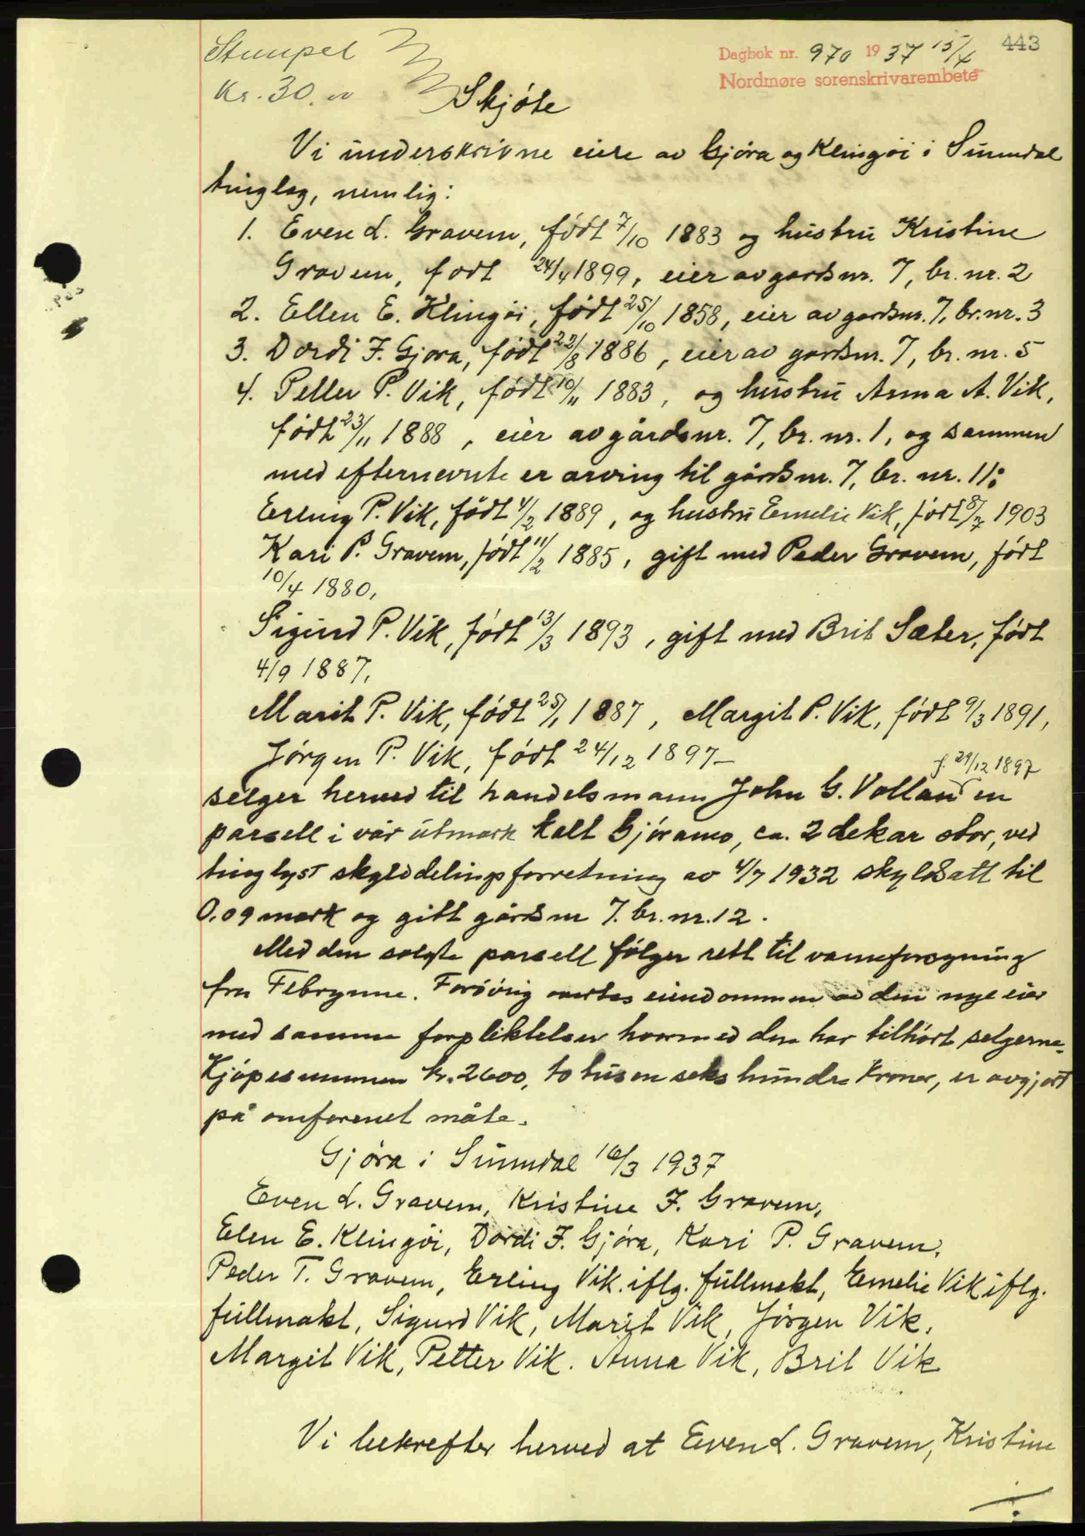 Stempel
Kr. 30.00
Dagbok nr. 970 1937 15/4 443
Nordmøre sorenskrivarembete
Skjøte
Vi underskrivne eiere av Gjøra og Klingøi i Sunndal
tinglag, nemlig:
1. Even L. Gravem, født 7/10 1883 og hustru Kristine
Gravem, født 24/4 1899, eier av gardsnr. 7, br. nr. 2
2. Ellen E. Klingøi, født 25/10 1858, eier av gardsnr. 7, br. nr. 3
3. Dordi F. Gjøra, født 22/8 1886, eier av gardsnr. 7, br. nr. 5
4. Petter P. Vik, født 10/11 1883, og hustru Anna A. Vik,
født 23/11 1888, eier av gårdsnr. 7, br. nr. 1, og sammen
med efternevnte er arving til gårdsnr. 7, br. nr. 11:
Erling P. Vik, født 4/2 1889, og hustru Emelie Vik, født 8/7 1903
Kari P. Gravem, født 11/2 1885, gift med Peder Gravem, født
10/4 1880,
Sigurd P. Vik, født 13/3 1893, gift med Brit Sæter, født
4/9 1887,
Marit P. Vik, født 25/1 1887, Margit P. Vik, født 9/3 1891,
Jørgen P. Vik, født 24/12 1897-
f. 29/12 1897
selger herved til handelsmann John G. Vollan en
parsell i vår utmark kalt Gjøramo, ca. 2 dekar stor, ved
tinglyst skylddelingsforretning av 4/7 1932 skyldsatt til
0,09 mark og gitt gårdsnr 7. br. nr. 12.
Med den solgte parsell følger rett til vannforsyning
fra Flbrynne. Forøvrig overtas eiendommen av den nye eier
med samme forpliktelser hvormed den har tilhørt selgerne.
Kjøpesummen kr. 2600, to tusen seks hundre kroner, er avgjort
på omforenet måte.
Gjøra i Sunndal 16/3 1937
Even L. Gravem, Kristine F. Gravem,
Elen E. Klingøi, Dordi F. Gjøra, Kari P. Gravem,
Peder T. Gravem, Erling Vik. iflg. fullmakt, Emelie Vik iflg.
fullmakt, Sigurd Vik, Marit Vik, Jørgen Vik,
Margit Vik, Petter Vik. Anna Vik, Brit Vik
Vi bekrefter herved at Even L. Gravem, Kristine